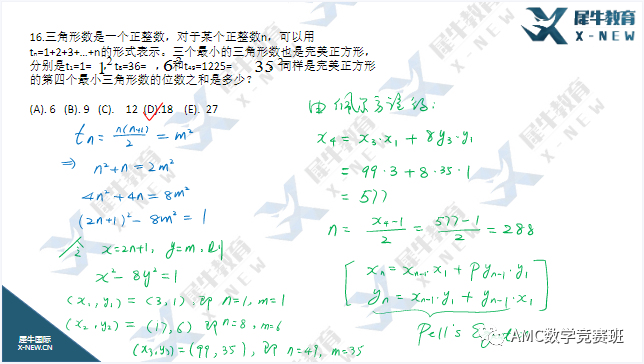 犀牛教育
X-NEW
16.三角形数是一个正整数，对于某个正整数n，可以用
tₙ=1+2+3+...+n的形式表示。三个最小的三角形数也是完美正方形，
分别是t₁=1= 1² t₈=36= ，6²和t₄₉=1225= 35² 同样是完美正方形
的第四个最小三角形数的位数之和是多少？
(A). 6 (B). 9 (C). 12 (D).18 (E). 27
tₙ = n(n+1)/2 = m²
⇒ n²+n = 2m²
4n²+4n = 8m²
(2n+1)² - 8m² = 1
令 x=2n+1, y=m, 则
x² - 8y² = 1
(x₁, y₁) = (3, 1), 即 n=1, m=1
(x₂, y₂) = (17, 6) 即 n=8, m=6
(x₃, y₃) = (99, 35), 即 n=49, m=35
由佩尔方程得:
x₄ = x₃·x₁ + 8y₃·y₁
= 99·3 + 8·35·1
= 577
n = (x₄-1)/2 = (577-1)/2 = 288
xₙ = xₙ₋₁·x₁ + P yₙ₋₁·y₁
yₙ = xₙ₋₁·y₁ + yₙ₋₁·x₁
Pell's
AMC数学竞赛班
犀牛国际
X-NEW.CN
犀牛教育
X-NEW
犀牛教育
X-NEW
犀牛教育
X-NEW